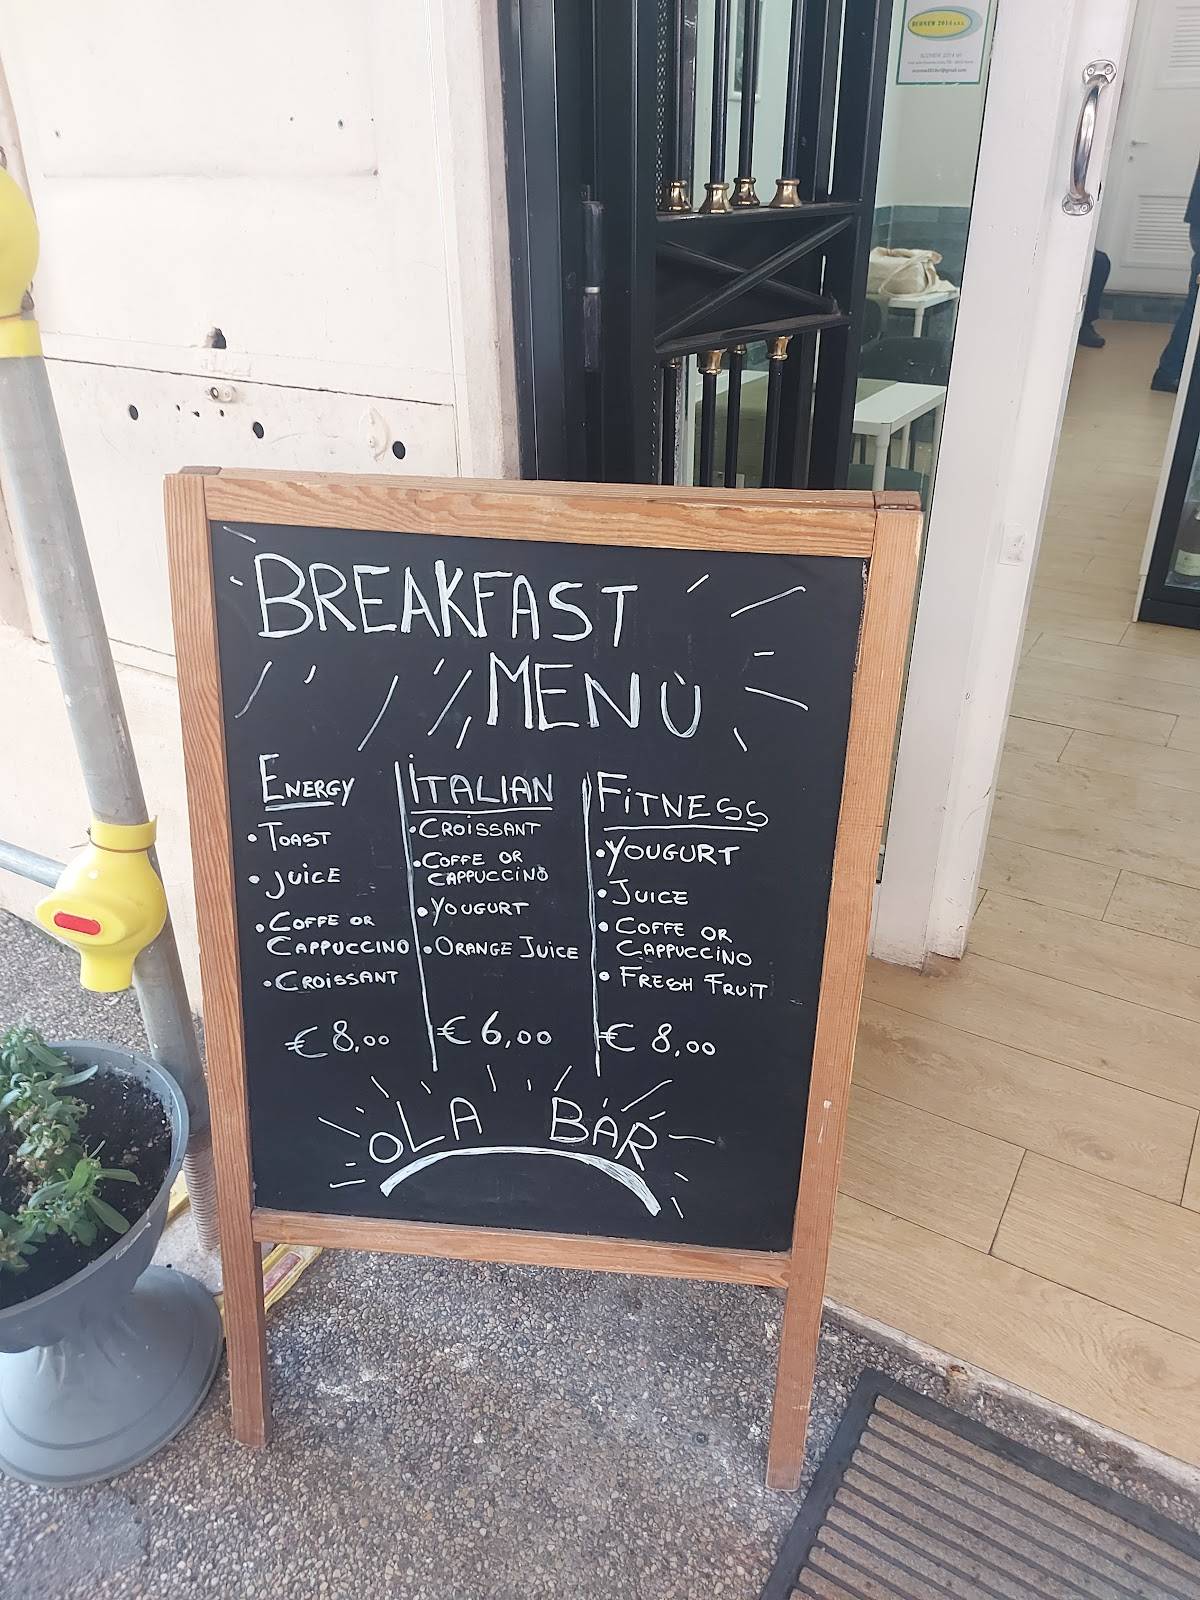 BREAKFAST
MENÙ
ENERGY
• TOAST
• JUICE
• COFFE OR
CAPPUCCINO
• CROISSANT
€ 8,00
ITALIAN
• CROISSANT
• COFFE OR
CAPPUCCINO
• YOUGURT
• ORANGE JUICE
€ 6,00
FITNESS
• YOUGURT
• JUICE
• COFFE OR
CAPPUCCINO
• FRESH FRUIT
€ 8,00
OLA BAR